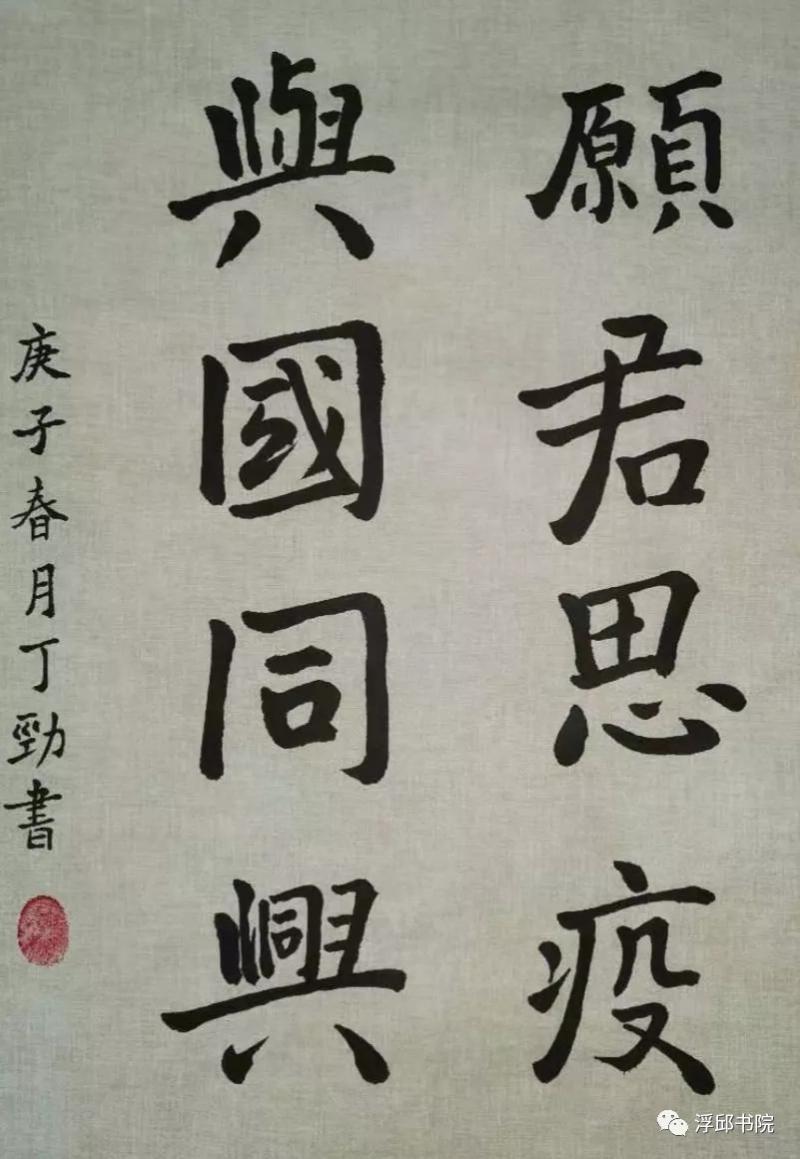 願君思疫
與國同興
庚子春月丁勁書
浮邱书院